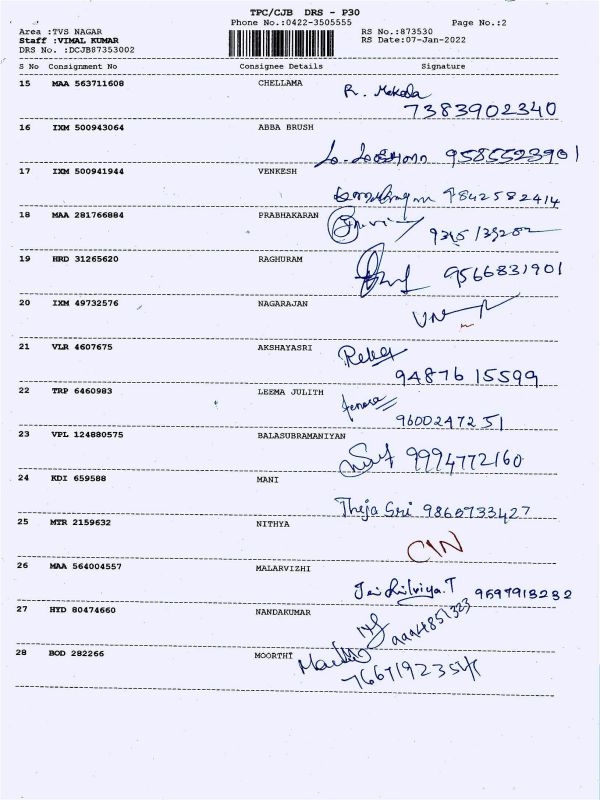 TPC/CJB DRS - P30
Phone No.:0422-3505555 Page No.:2
Area :TVS NAGAR RS No.:873530
Staff :VIMAL KUMAR RS Date:07-Jan-2022
DRS No. :DCJB87353002
S No Consignment No Consignee Details Signature
15 MAA 563711608 CHELLAMA R.
7383902340
16 IXM 500943064 ABBA BRUSH
9585523901
17 IXM 500941944 VENKESH
9842582414
18 MAA 281766884 PRABHAKARAN
19 HRD 31265620 RAGHURAM
9566831901
20 IXM 49732576 NAGARAJAN
21 VLR 4607675 AKSHAYASRI
94876 15599
22 TRP 6460983 LEEMA JULITH
9600247251
23 VPL 124880575 BALASUBRAMANIYAN
9994772160
24 KDI 659588 MANI
Theja Sri 9860733427
25 MTR 2159632 NITHYA
CIN
26 MAA 564004557 MALARVIZHI
9697913232
27 HYD 80474660 NANDAKUMAR
28 BOD 282266 MOORTHI